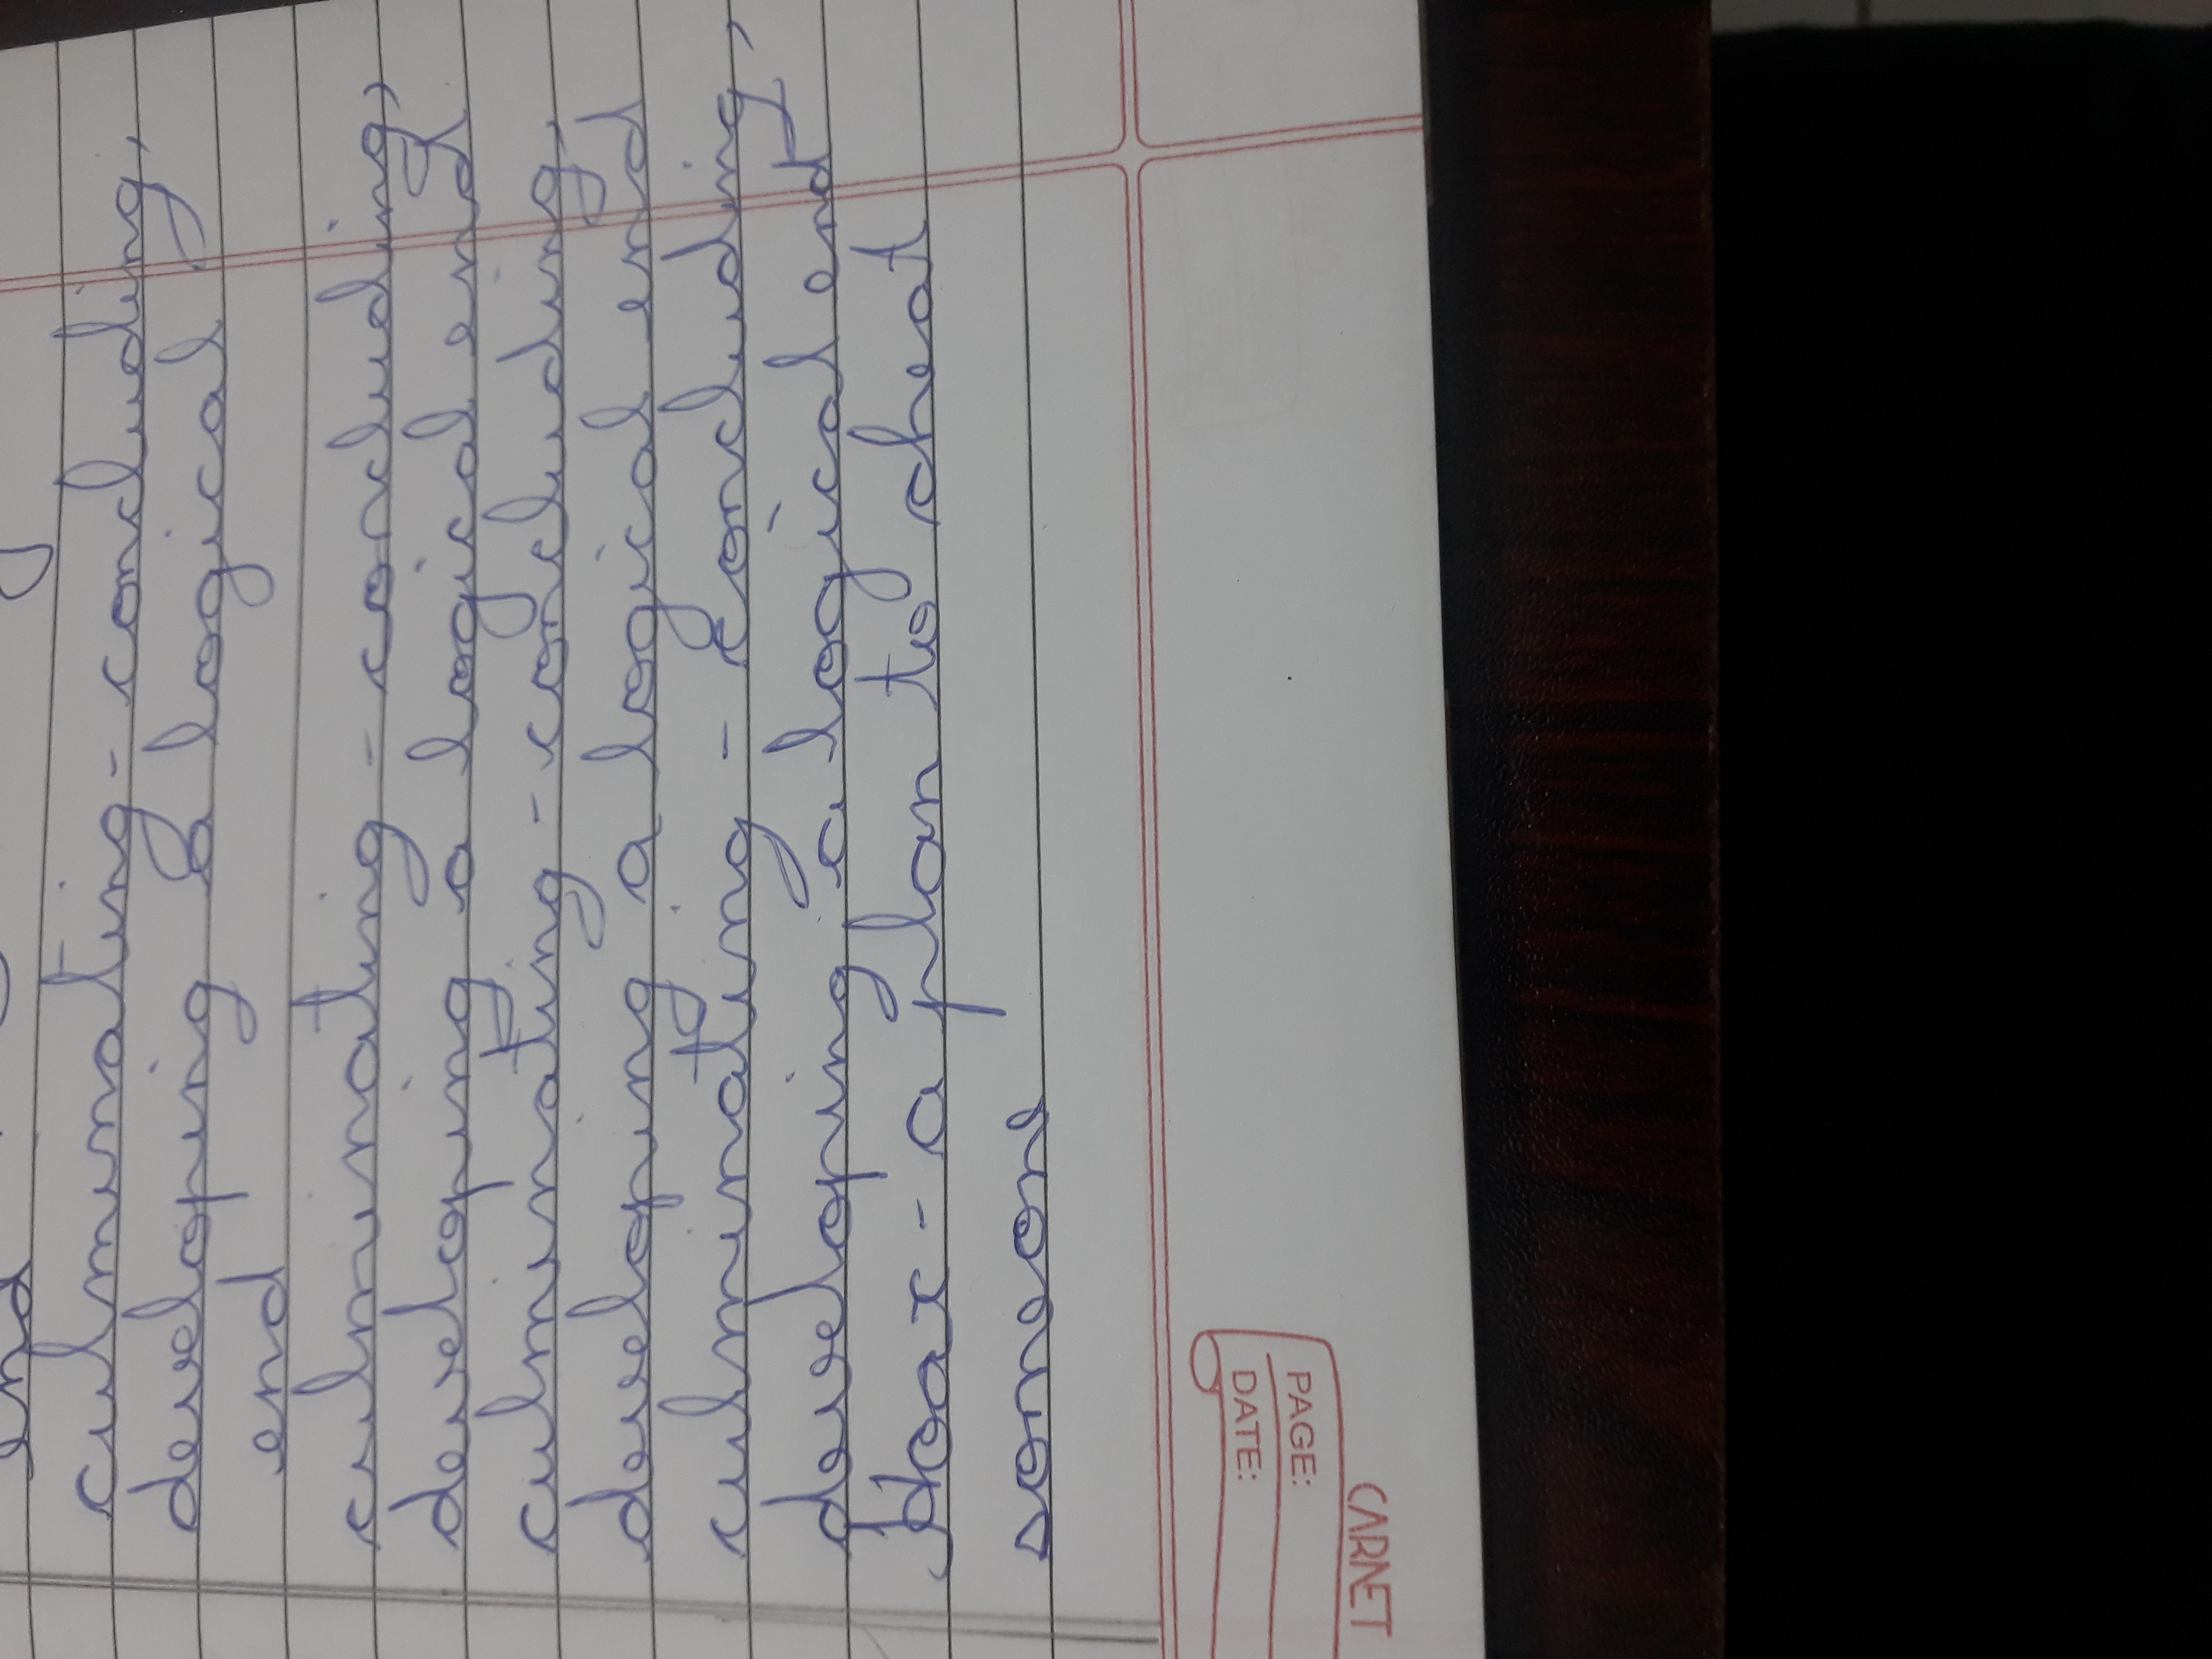 end
culminating - concluding,
developing a logical
end
culminating - concluding,
developing a logical end
culminating - concluding,
developing a logical end
culminating - concluding,
developing a logical end
Hoax - a plan to cheat
someone
PAGE:
DATE:
CARNET